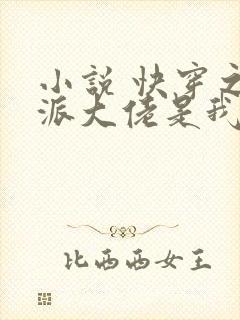 小说 快穿之
派大佬是我
比西西女王